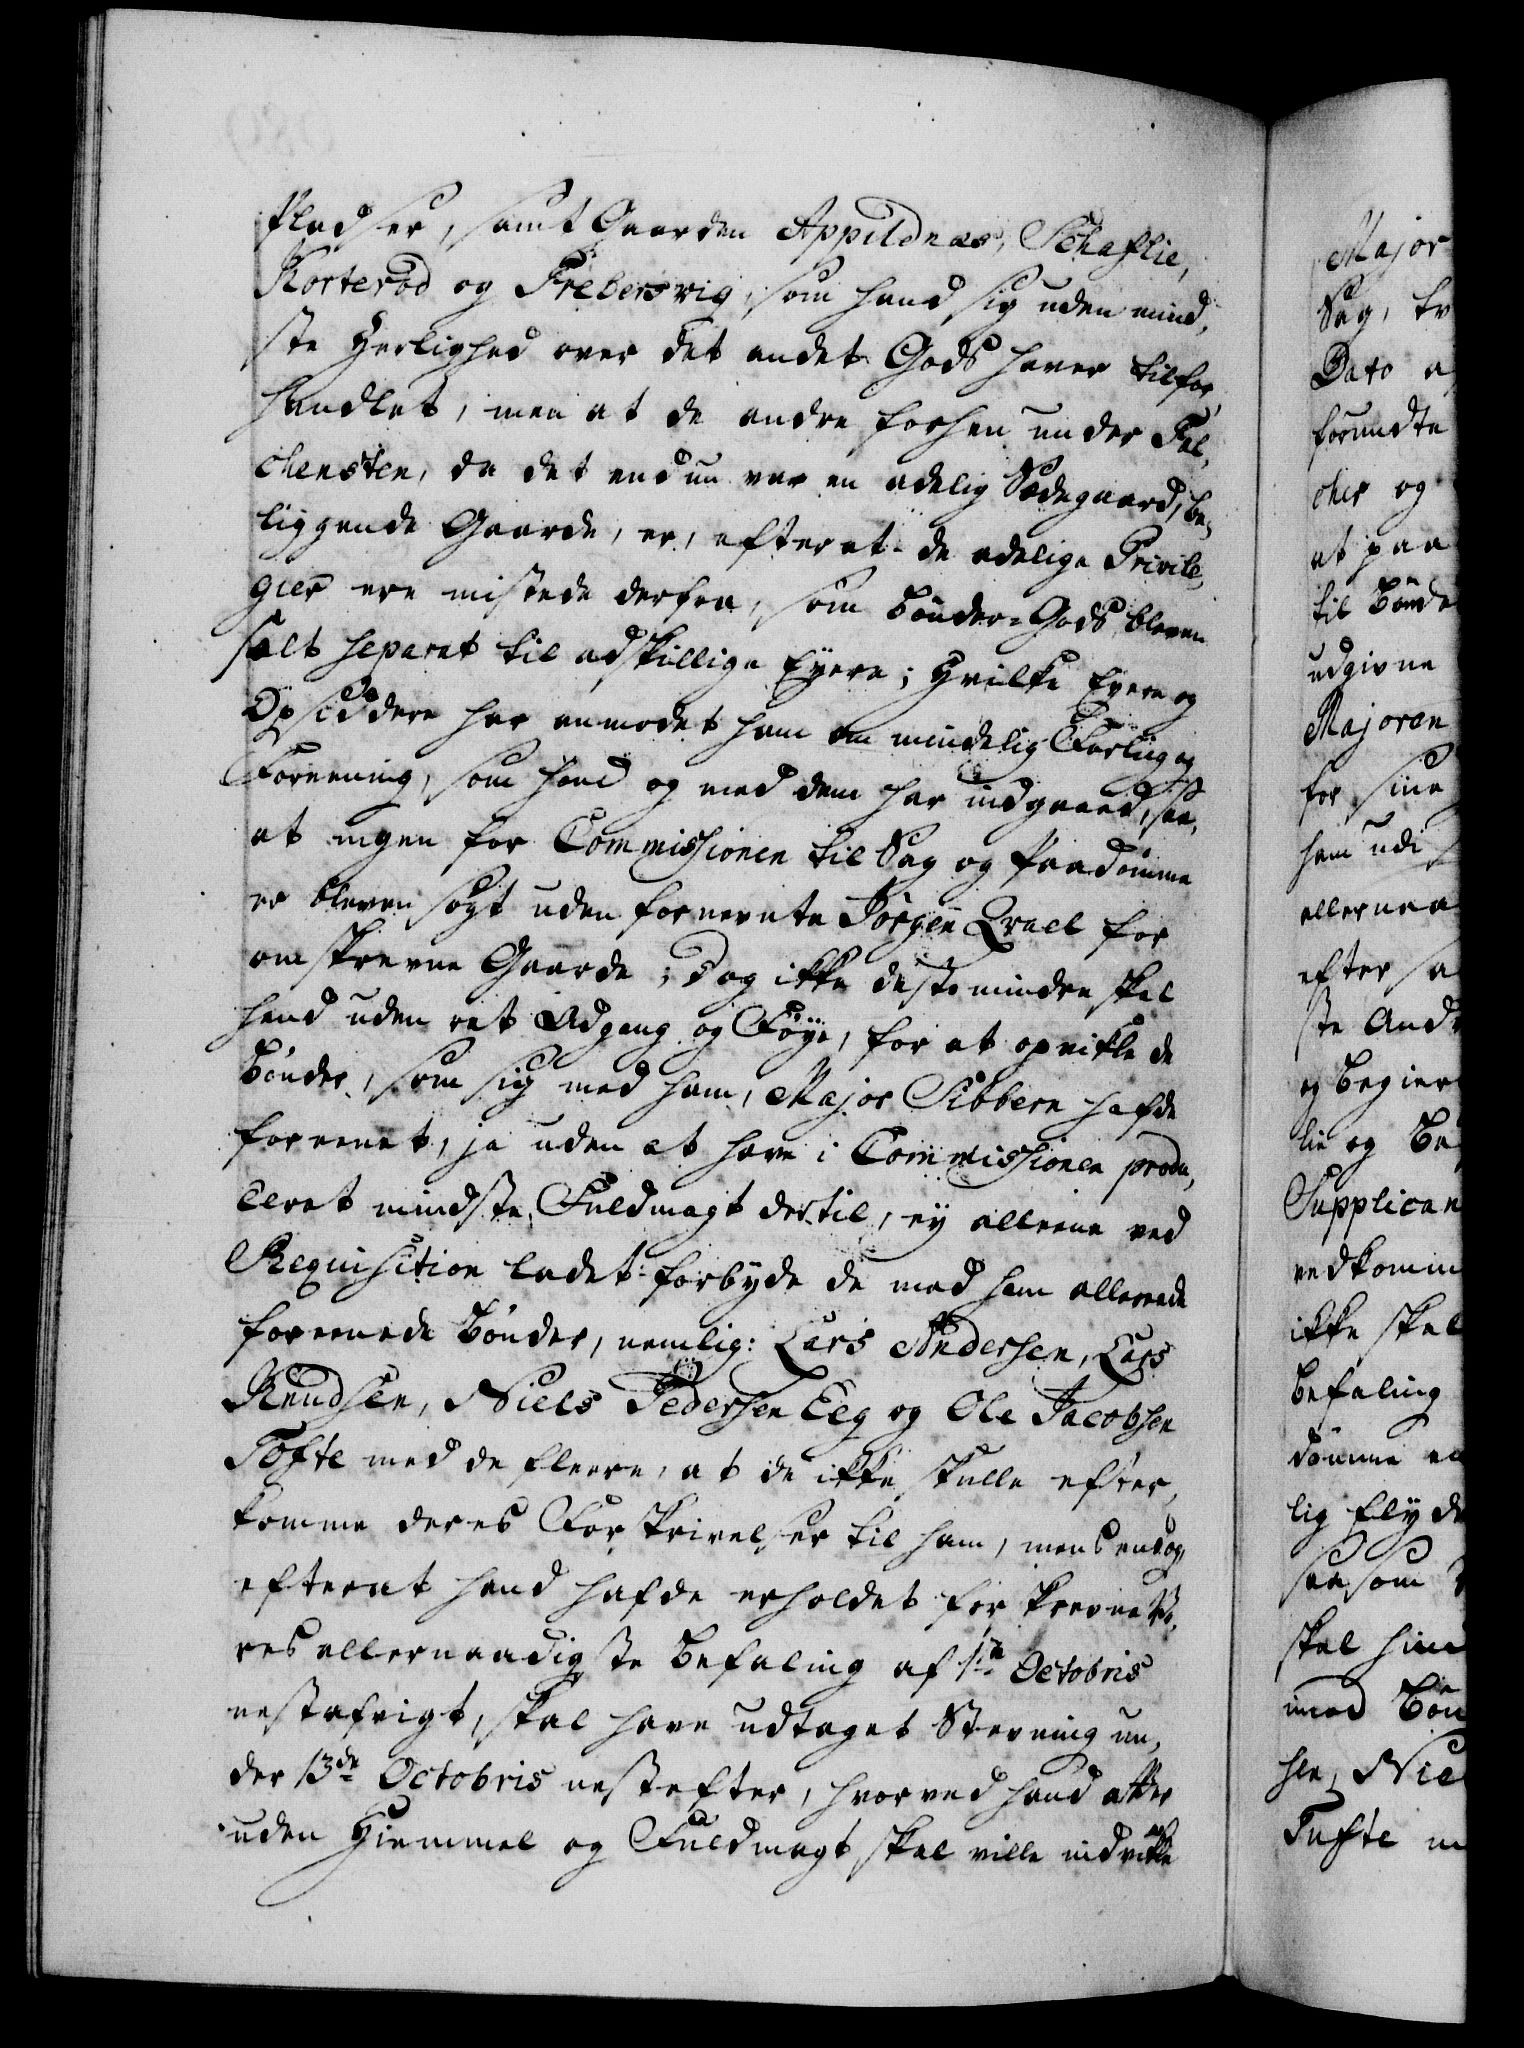 Pladser, samt Gaarden Appildnæs, Schaflie,
Korterød og Frebersvig, som hand sig uden mind,
ste Herlighed over det andet Gods haver tilfor,
handlet, men at de andre forhen under Fal,
chensten, da det endnu var en adelig Sædegaard, be,
liggende Gaarde, er, efterat de adelige Privile,
gier ere mistede derfra, som Bønder-Gods bleven
solt separat til adskillige Eyere; Hvilke Eyere og
Opsiddere har anmodet ham om mindelig Forliig og
Foreening, som hand og med dem har indgaaed, saa,
at ingen for Commissionen til Sag og Paadømme
er bleven søgt uden fornevnte Jørgen Qvael for
omskrevne Gaarde; Dog ikke desto mindre skal
hand uden ret Adgang og Føye, for at opvikle de
Bønder, som sig med ham, Major Sibbern hafde
foreenet, ja uden at have i Commissionen produ,
ceret mindste Fuldmagt dertil, ey alleene ved
Requisition ladet forbyde de med ham allereede
foreenede Bønder, nemlig: Lars Andersen, Lars
Knudsen, Niels Pedersen Eeg og Ole Jacobsen
Tofte med de fleere, at de ikke skulle efter,
komme deres Forskrivelser til ham, mens endog,
efterat hand hafde erholdet forskrevne Vo,
res allernaadigste Befaling af 1te Octobris
nestafvigt, skal have udtaget Stevning un,
der 13de Octobris nestefter, hvorved hand atter
uden Hiemmel og Fuldmagt skal ville indvikle
Major
Sag,
Dato
forundte
cher og
at paa
til Bønde
udgivne
Majoren
for sine
ham udi
allernaa
efter
ste And
og begier
lie og Be
Supplican
vedkomm
ikke skal
Befaling
dømme
lig flyde
saasom
skal hand
imod Bøn
sen, Nie
Tufte